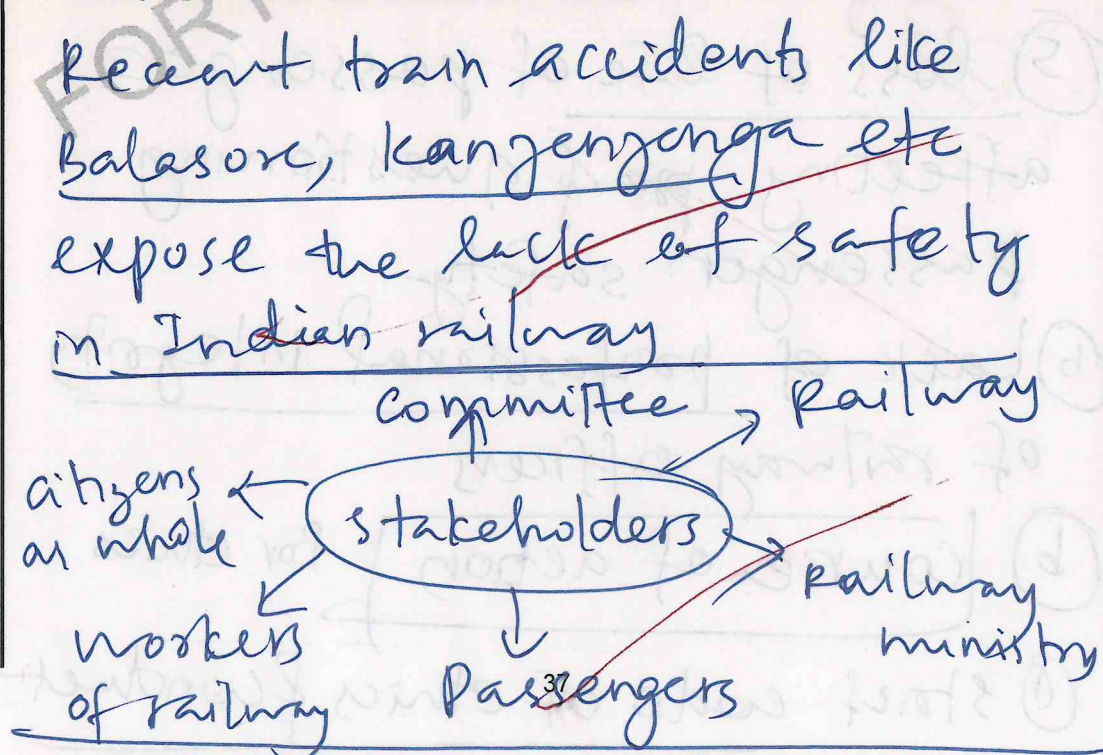 Recent train accidents like
Balasore, Kanzenzonga etc
expose the lack of safety
in Indian railway
committee
Railway
citizens
as whole
stakeholders
Railway
ministry
workers
of railway
Passengers
37